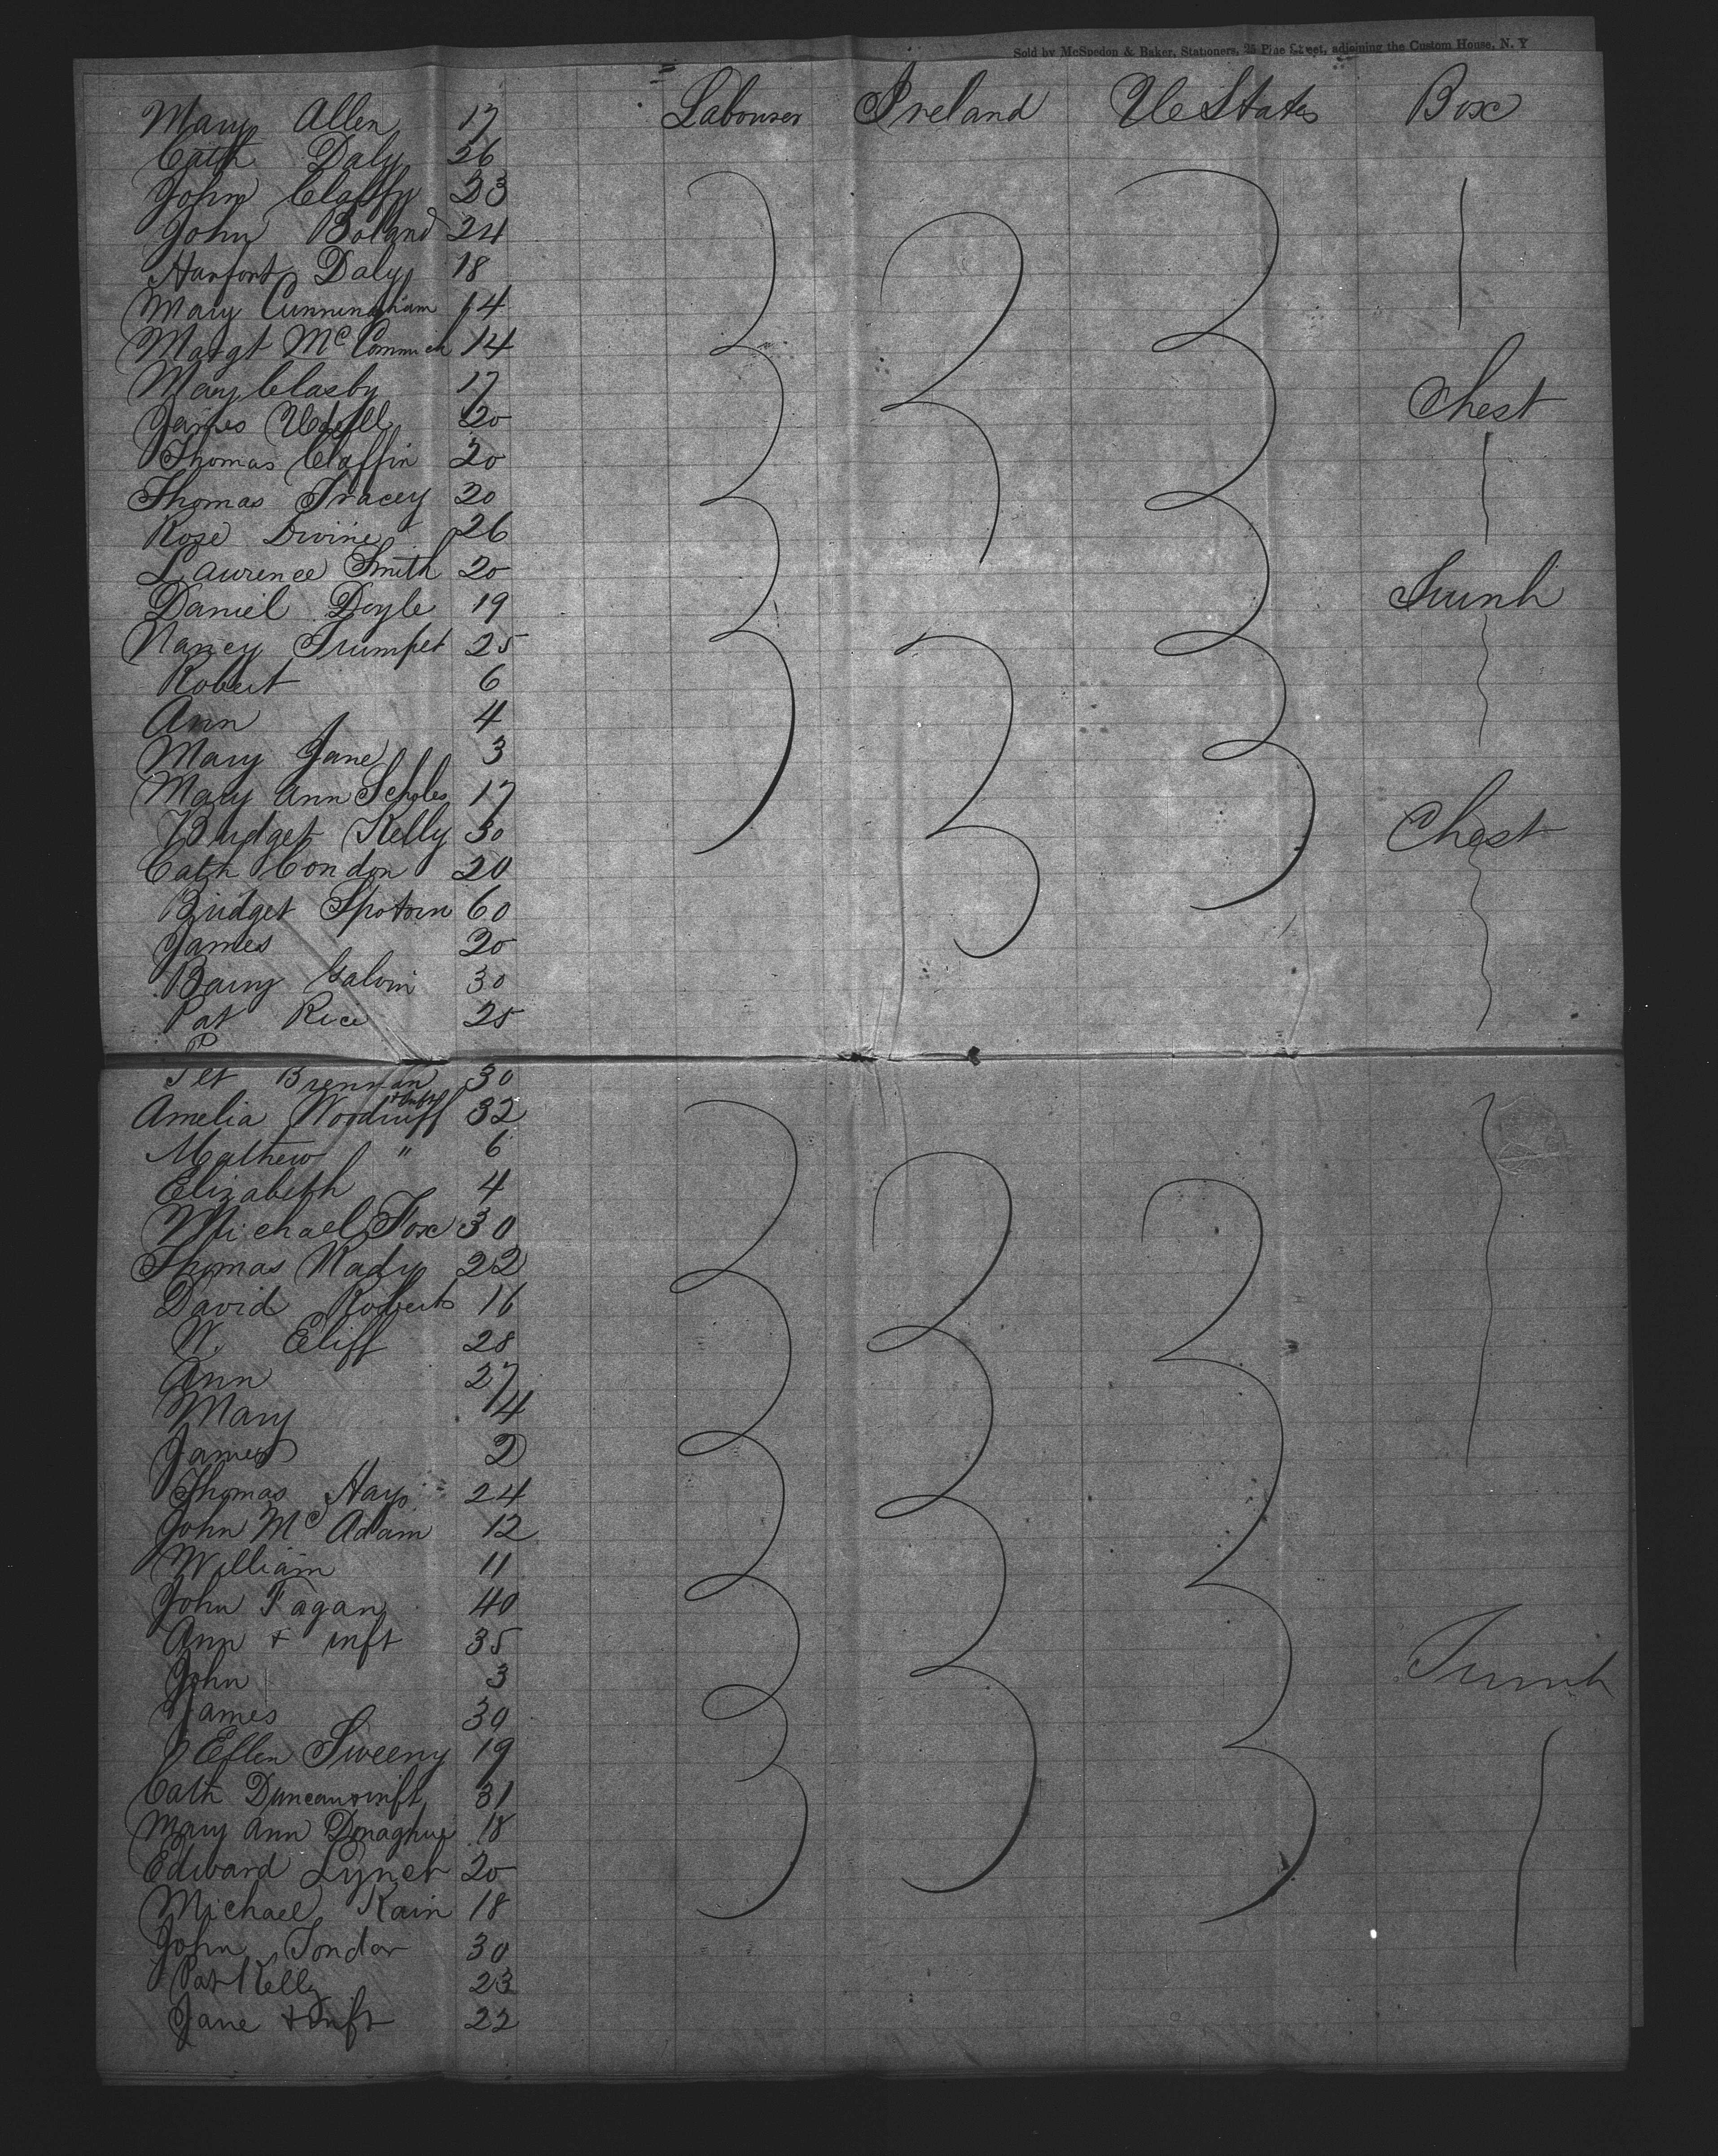 Sold by McSpedon & Baker, Stationers, 25 Pine Street, adjoining the Custom House, N. Y
Mary Allen 17 Labourer Ireland U States Box
Cath Daly 26
John Claffy 23
John Boland 24
Daly 18
Mary Cunningham 14
Margt McCormick 14
Mary Clasby 17 Chest
James 20
Thomas Claffin 20
Thomas Tracey 20
Rose Divine 26
Laurence Smith 20 Trunk
Daniel Doyle 19
Nancy Trumpet 25
Robert 6
Ann 4
Mary Jane 3
Mary Ann 17
Bridget Kelly 30 Chest
Cath Condon 20
Bridget 60
James 20
Barny Galvin 30
Pat Rice 25
P
Brennan 30
Amelia Woodruff + Inft 32
Mathew " 6
Elizabeth 4
Michael Fox 30
Thomas 22
David Roberts 16
W. Eliff 28
Ann 27
Mary 4
James 2
Thomas Hays 24
John McAdam 12
William 11
John Fagan 40
Ann + inft 35
John 3 Trunk
James 30
Ellen Sweeny 19
Cath Duncan + inft 31
Mary Ann Donaghue 18
Edward Lynch 20
Michael Kain 18
John 30
Pat Kelly 23
Jane + Inft 22